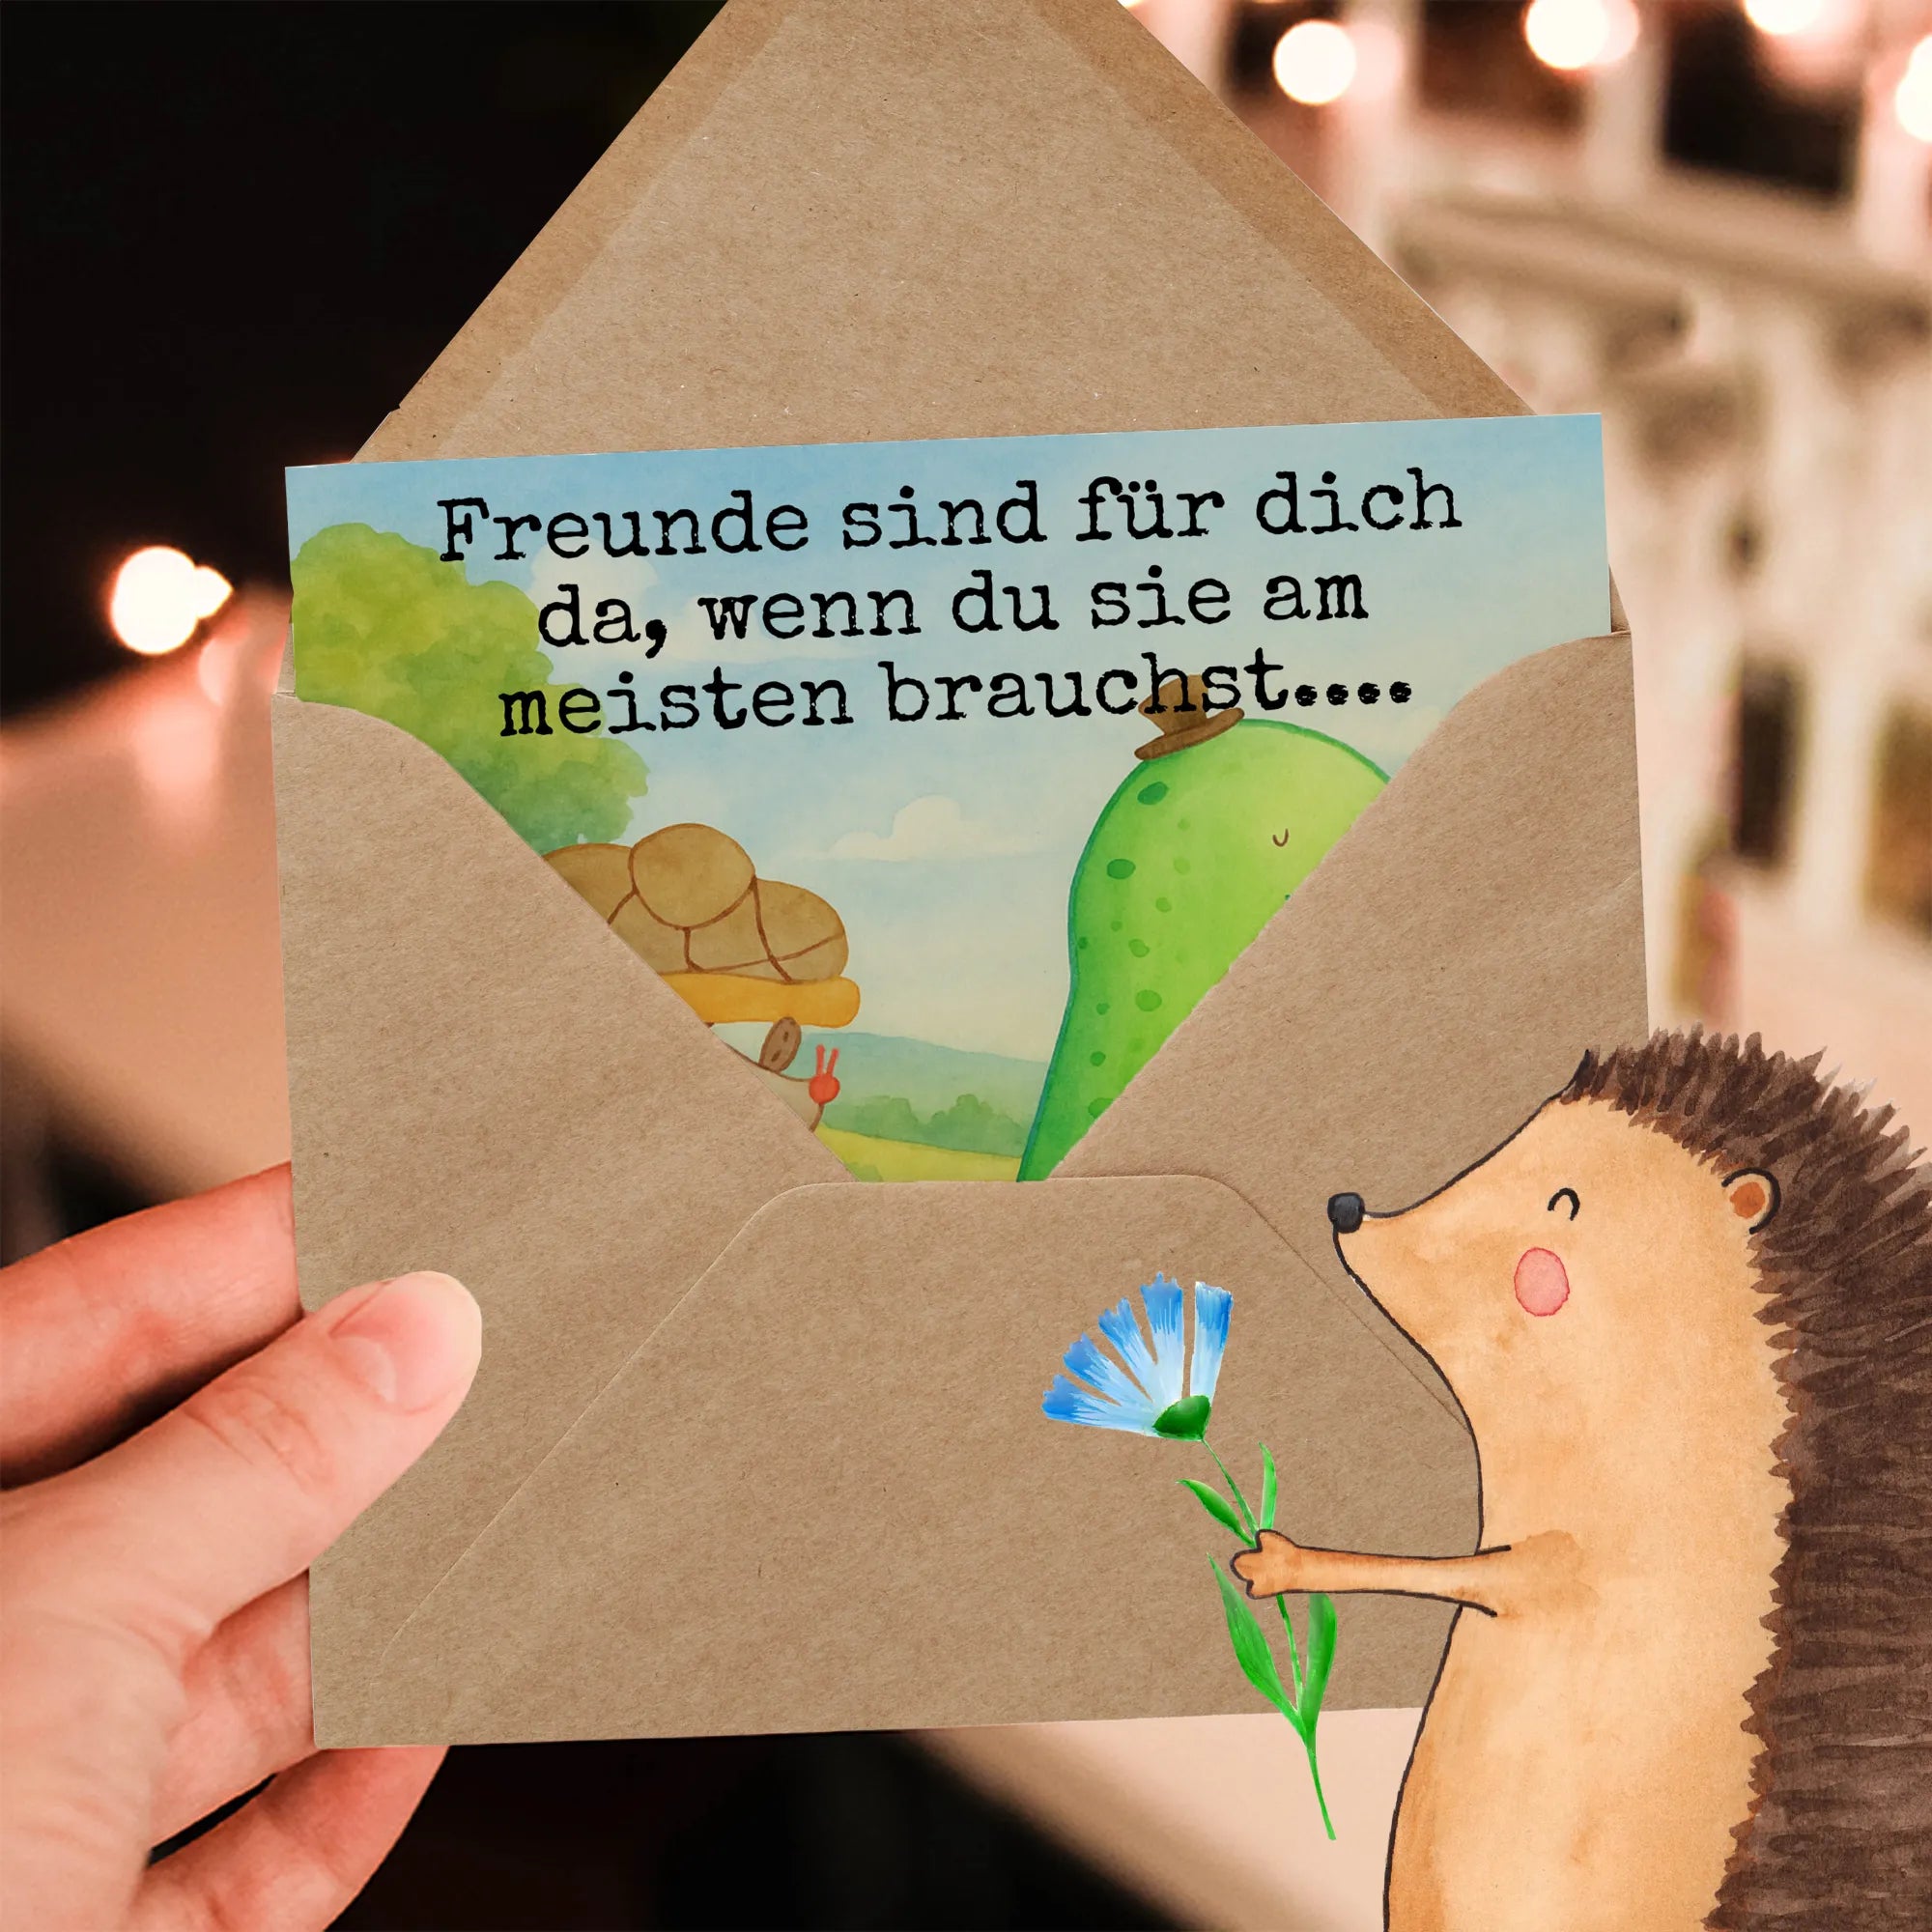 Freunde sind für dich
da, wenn du sie am
meisten brauchst....